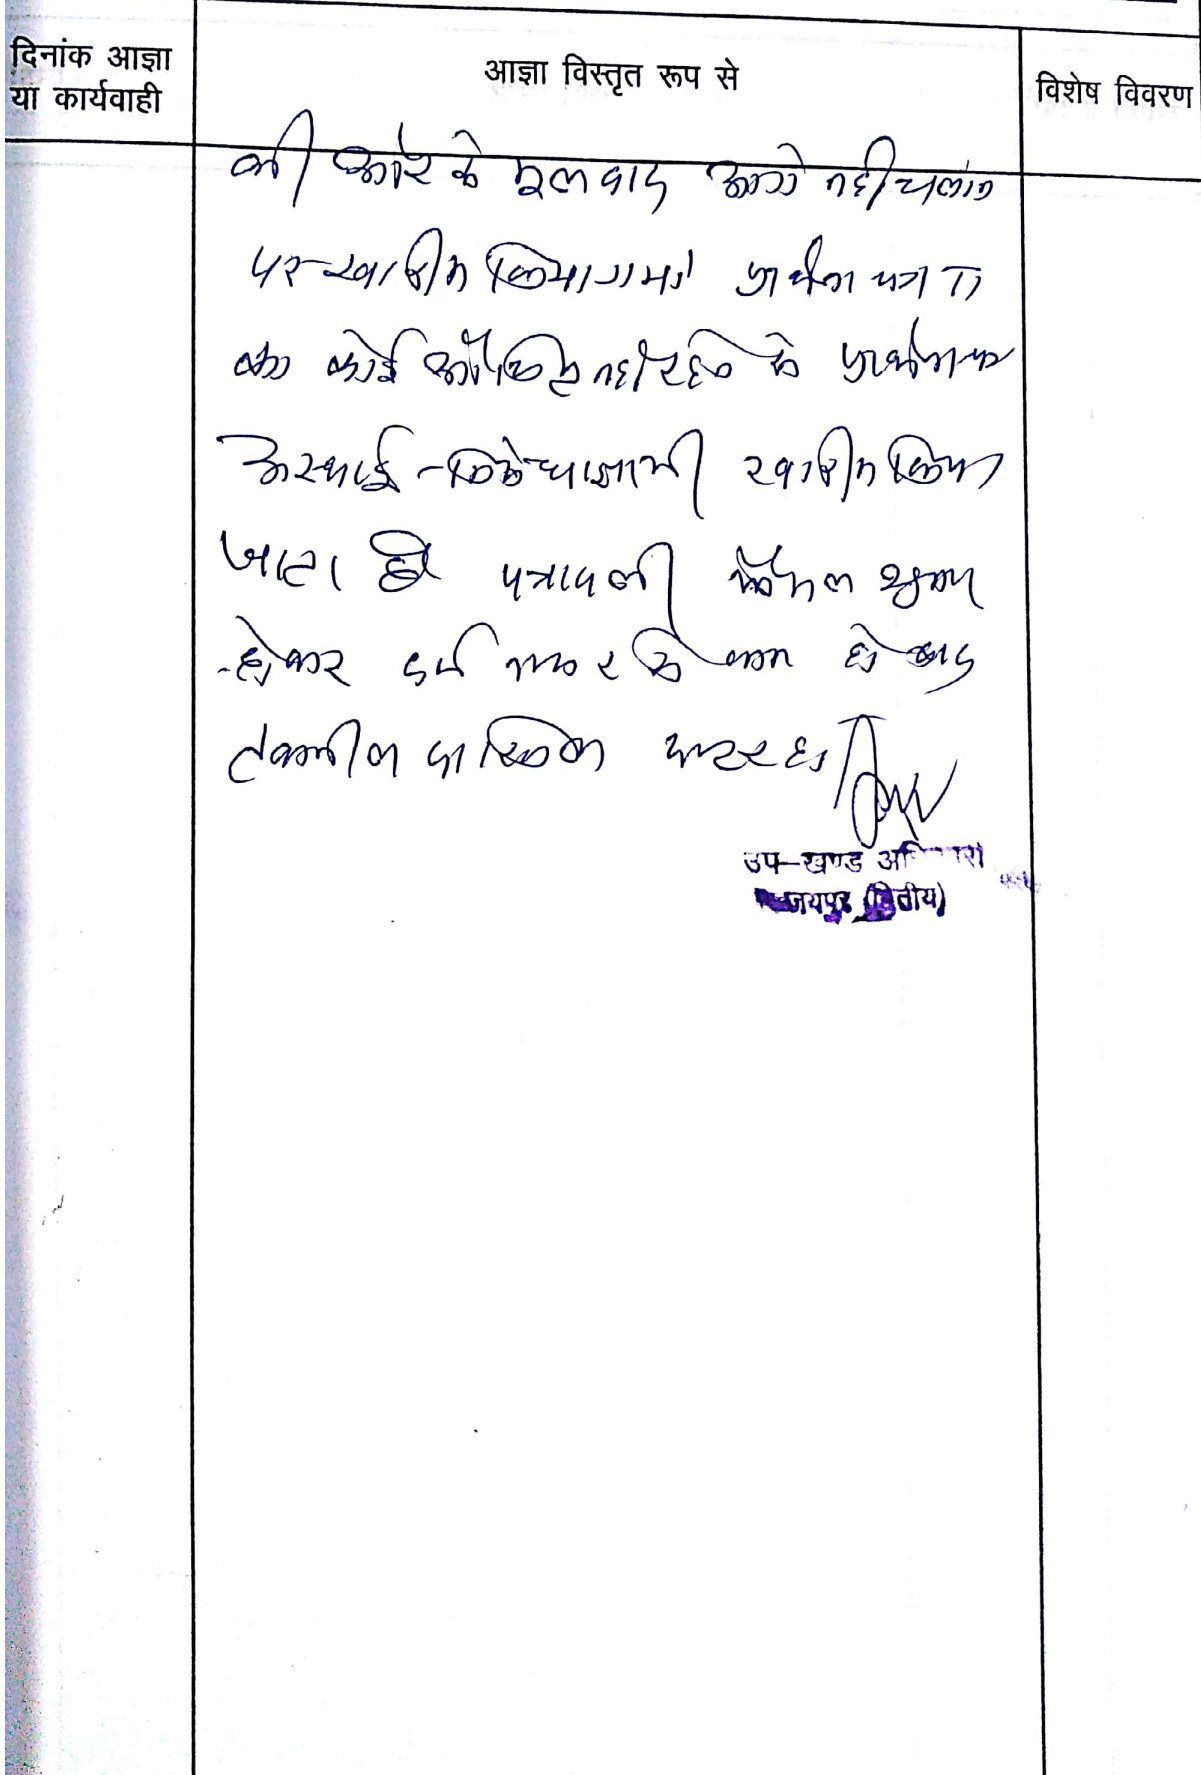 दिनांक आज्ञा
या कार्यवाही
आज्ञा विस्तृत रूप से
विशेष विवरण
की ओर से मूलवाद आगे नहीं चलाने
पर खारीज किया गया प्रार्थना पत्र
का कोई औचित्य नहीं रहने से
अस्थाई निषेधाज्ञा भी खारीज किया
जाता है पत्रावली फैसल शुमार
होकर दर्ज नम्बर से कम हो बाद
तकमील दाखिल दफ्तर हो
उप-खण्ड
जयपुर (द्वितीय)